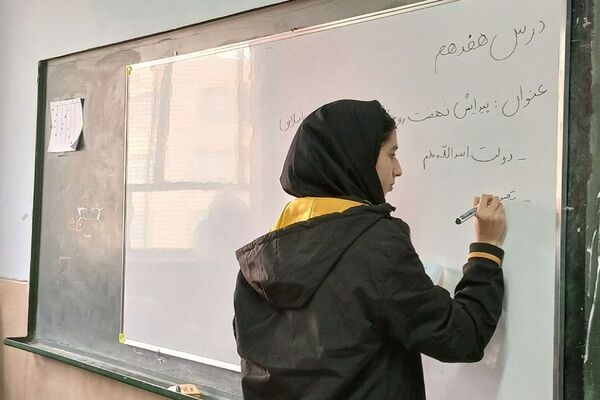 درس هفدهم
عنوان : پیدایش نهضت رو
- دولت اسدالله علم